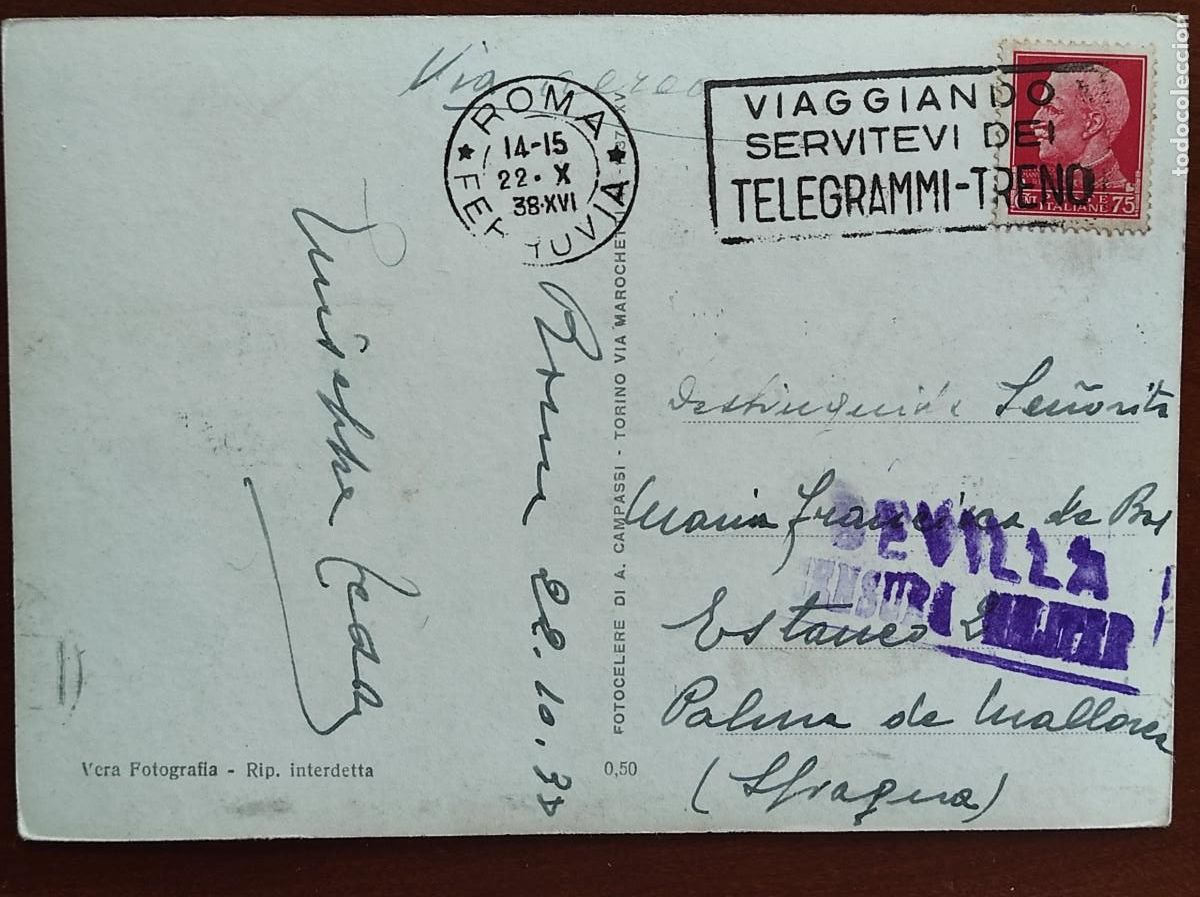 Via aerea
ROMA
FERROVIA
14-15
22 · X
38·XVI
VIAGGIANDO
SERVITEVI DEI
TELEGRAMMI-TRENO
POSTE
ITALIANE 75
Roma 22.10.38
FOTOCELERE DI A. CAMPASSI - TORINO VIA MAROCHET
Señorita
Maria Francisca de
SEVILLA
CENSURA MILITAR
Estanco 2
Palma de Mallorca
(Spagna)
Vera Fotografia - Rip. interdetta
0,50
todocoleccion